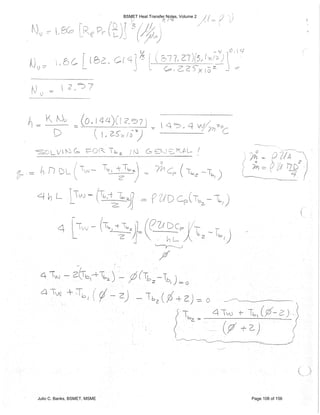 BSMET Heat Transfer Notes, Volume 2
N_U = 1.86 [Re Pr (D/L)]^(1/3) (μ/μ_w)
N_U = 1.86 [182.614]^(1/3)
N_U = 12.57
h = K N_U / D = (0.144)(12.57) / (1.25×10^-2) = 145.4 W/m²°C
SOLVING FOR T_b2 IN GENERAL!
q = h π D L (T_w - (T_b1 + T_b2)/2) = ṁ C_p (T_b2 - T_b1)
4 h L [T_w - (T_b1 + T_b2)/2] = ρ U D C_p (T_b2 - T_b1)
4 [T_w - (T_b1 + T_b2)/2] = (ρ U D C_p / h L) (T_b2 - T_b1)
φ
4 T_w - 2(T_b1 + T_b2) - φ(T_b2 - T_b1) = 0
4 T_w + T_b1 (φ - 2) - T_b2 (φ + 2) = 0
T_b2 = 4 T_w + T_b1 (φ - 2) / (φ + 2)
Julio C. Banks, BSMET, MSME
Page 108 of 159